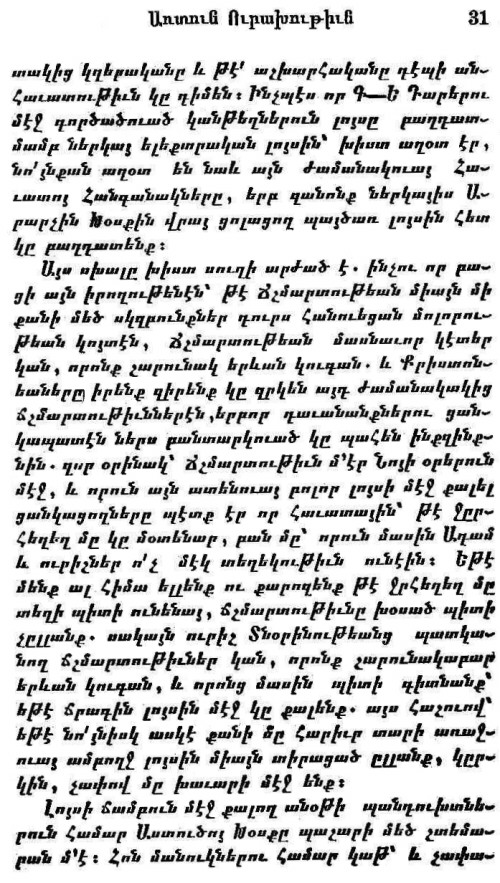 Առտուն Ուրախութիւն 31
տակից կղերականը և թէ՛ աշխարհականը դէպի ան֊
հաւատութիւն կը դիմեն։ Ինչպէս որ Գ—Ե Դարերու
մէջ գործածուած կանթեղներուն լոյսը բաղդատ֊
մամբ ներկայ ելեքտրական լոյսին՝ խիստ աղօտ էր,
նո՛յնքան աղօտ են նաև այն ժամանակուայ Հա֊
ւատոյ Հանգանակները, երբ զանոնք ներկայիս Ա֊
րարչին Խօսքին վրայ ցոլացող պայծառ լոյսին հետ
կը բաղդատենք։
Այս սխալը խիստ սուղի արժած է. ինչու որ բա֊
ցի այն իրողութենէն՝ թէ Ճշմարտութեան միայն մի
քանի մեծ սկզբունքներ դուրս հանուեցան մոլորու֊
թեան կոյտէն, Ճշմարտութեան մասնաւոր կէտեր
կան, որոնք շարունակ երևան կուգան. և Քրիստոն֊
եաները իրենք զիրենք կը զրկեն այդ ժամանակակից
ճշմարտութիւններէն, երբոր դաւանանքներու ցան֊
կապատէն ներս բանտարկուած կը պահեն ինքզինք֊
նին. զոր օրինակ՝ Ճշմարտութիւն մ՚էր Նոյի օրերուն
մէջ, և որուն այն ատենուայ բոլոր լոյսի մէջ քալել
ցանկացողները պէտք էր որ հաւատային՝ թէ Ջըր֊
հեղեղ մը կը մօտենար, բան մը՝ որուն մասին Ադամ
և ուրիշներ ո՛չ մէկ տեղեկութիւն ունէին։ Եթէ
մենք ալ հիմա ելլենք ու քարոզենք թէ ջրհեղեղ մը
տեղի պիտի ունենայ, ճշմարտութիւնը խօսած պիտի
չըլլանք. սակայն ուրիշ Տնօրինութեանց պատկա֊
նող ճշմարտութիւներ կան, որոնք շարունակաբար
երևան կուգան, և որոնց մասին պիտի գիտնանք՝
եթէ ճրագին լոյսին մէջ կը քալենք. այս հաշուով՝
եթէ նո՛յնիսկ ասկէ քանի մը հարիւր տարի առաջ֊
ուայ ամբողջ լոյսին միայն տիրացած ըլլանք, կըր֊
կին, չափով մը խաւարի մէջ ենք։
Լոյսի ճամբուն մէջ քալող անօթի պանդուխտնե֊
րուն համար Աստուծոյ Խօսքը պաշարի մեծ շտեմա֊
րան մ՚է։ Հոն մանուկներու համար կաթ՝ և չափա֊